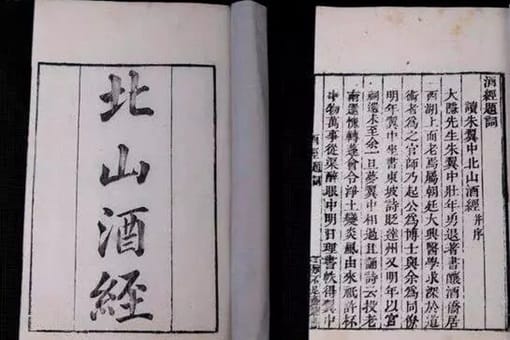 北山酒經
酒經題詞
讀朱翼中北山酒經 并序
大隱先生朱翼中壯年勇退著書釀酒僑居
西湖上而老焉屬朝廷大興醫學求深於道
術者為之官師乃起公為博士與余為同僚
明年翼中坐書東坡詩貶達州又明年以宮
祠還未至余一旦夢翼中相過且誦詩云投老
南還愧轉蓬會令淨土變炎風由來祇許杯
中物萬事從渠醉眼中明日理書帙得翼中
酒經題詞